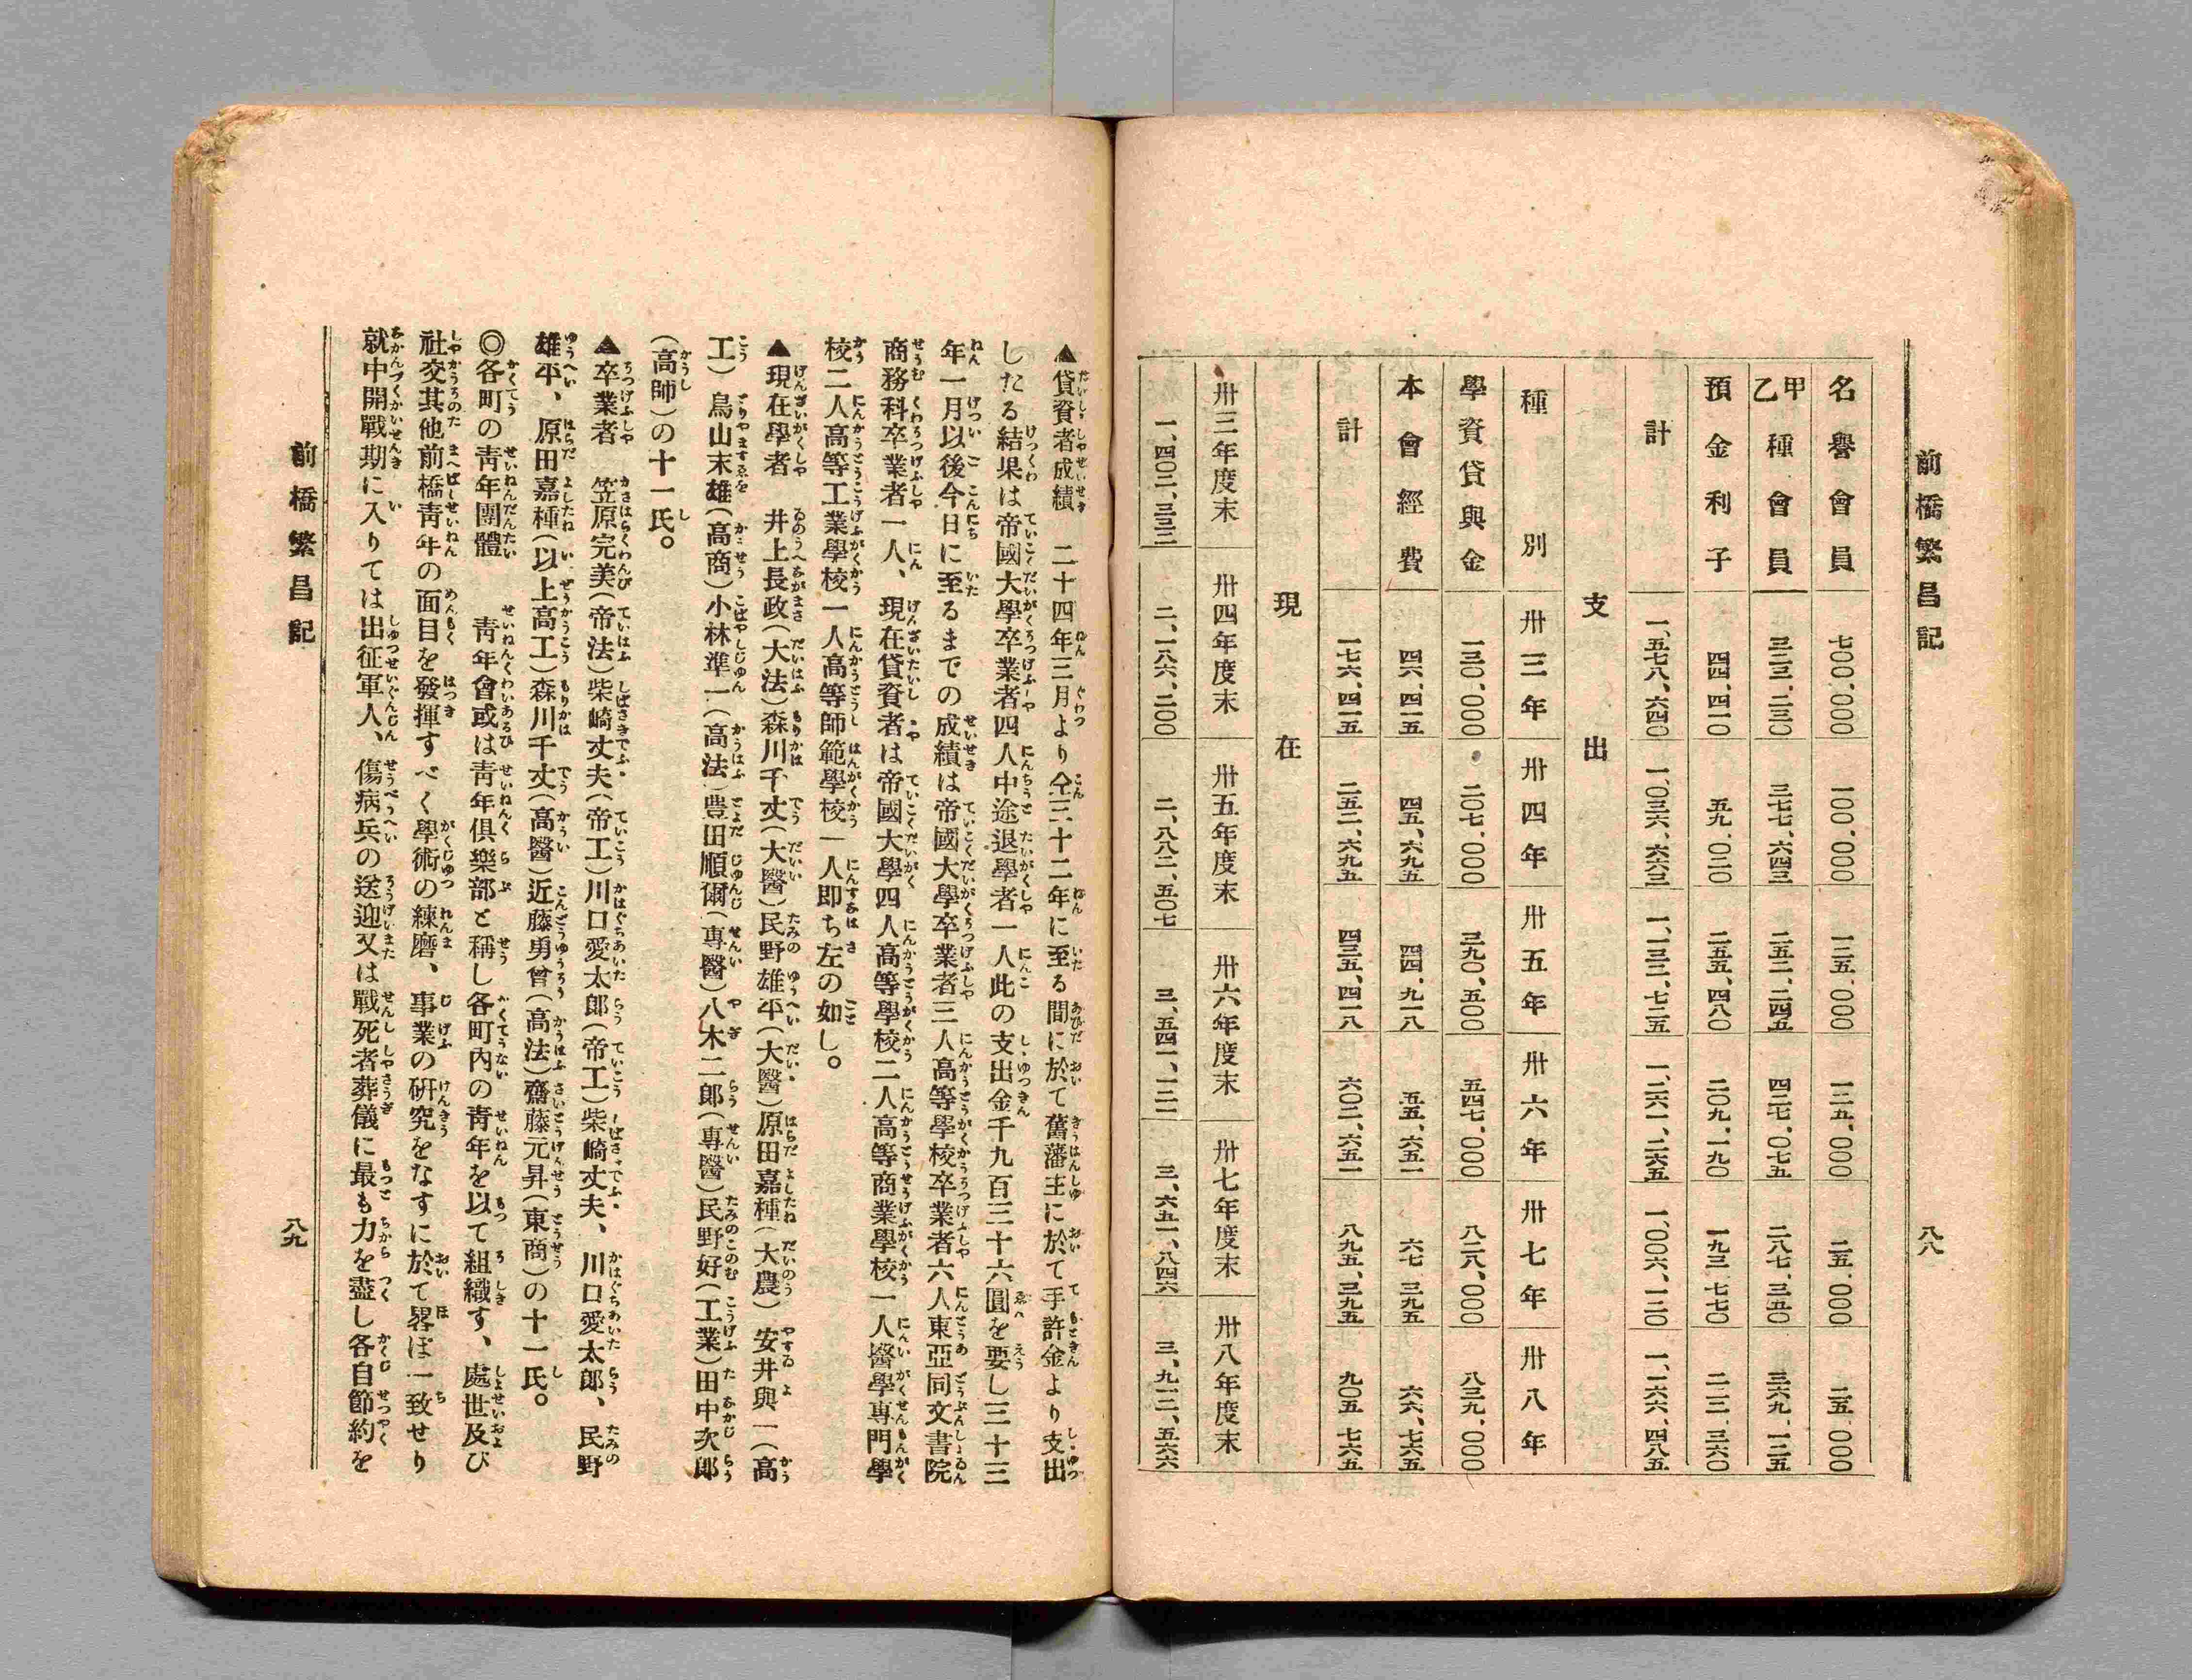 前橋繁昌記
八八
名譽會員 七〇〇、〇〇〇 一〇〇、〇〇〇 一三五、〇〇〇 一二五、〇〇〇 二五、〇〇〇 二五、〇〇〇
甲乙種會員 三二三、二三〇 三七七、六四三 二五二、二四五 四二七、〇七五 二八七、三五〇 三六九、一二五
預金利子 四四、四一〇 五九、〇二〇 二五五、四八〇 二〇九、一九〇 一九三、七七〇 二二二、三六〇
計 一、五七八、六四〇 一、〇三六、六六三 一、一三二、七二五 一、二六一、二六五 一、〇〇六、一二〇 一、一六六、四八五
支出
種別 卅三年 卅四年 卅五年 卅六年 卅七年 卅八年
學資貸與金 一三〇、〇〇〇 二〇七、〇〇〇 三九〇、五〇〇 五四七、〇〇〇 八二八、〇〇〇 八三九、〇〇〇
本會經費 四六、四一五 四五、六九五 四四、九一八 五五、六五一 六七、三九五 六六、七六五
計 一七六、四一五 二五二、六九五 四三五、四一八 六〇二、六五一 八九五、三九五 九〇五、七六五
現在
卅三年度末 卅四年度末 卅五年度末 卅六年度末 卅七年度末 卅八年度末
一、四〇二、三三二 二、一八六、二〇〇 二、八八二、五〇七 三、五四一、一二一 三、六五一、八四六 三、九一二、五六六
▲貸資者成績 二十四年三月より仝三十二年に至る間に於て舊藩主に於て手許金より支出
したる結果は帝國大學卒業者四人中途退學者一人此の支出金千九百三十六圓を要し三十三
年一月以後今日に至るまでの成績は帝國大學卒業者三人高等學校卒業者六人東亞同文書院
商務科卒業者一人、現在貸資者は帝國大學四人高等學校二人高等商業學校一人醫學專門學
校二人高等工業學校一人高等師範學校一人即ち左の如し。
▲現在學者 井上長政(大法)森川千丈(大醫)民野雄平(大醫)原田嘉種(大農)安井與一(高
工)鳥山末雄(高商)小林準一(高法)豊田順爾(專醫)八木二郎(專醫)民野好(工業)田中次郎
(高師)の十一氏。
▲卒業者 笠原完美(帝法)柴崎丈夫(帝工)川口愛太郎(帝工)柴崎丈夫、川口愛太郎、民野
雄平、原田嘉種(以上高工)森川千丈(高醫)近藤勇曾(高法)齋藤元昇(東商)の十一氏。
◎各町の靑年團體 靑年會或は靑年倶樂部と稱し各町內の靑年を以て組織す、處世及び
社交其他前橋靑年の面目を發揮すべく學術の練磨、事業の研究をなすに於て畧ぼ一致せり
就中開戰期に入りては出征軍人、傷病兵の送迎又は戰死者葬儀に最も力を盡し各自節約を
前橋繁昌記
八九